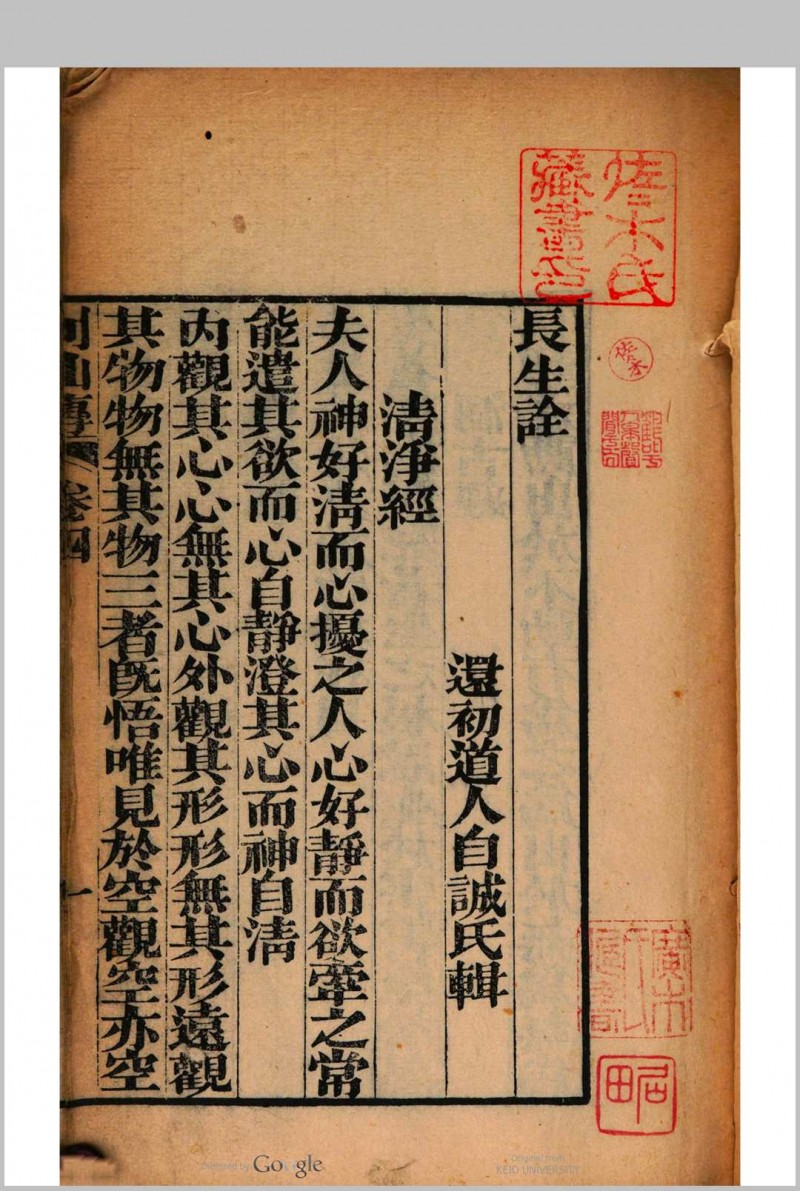 長生詮
還初道人自誠氏輯
淸淨經
夫人神好淸而心擾之人心好靜而欲牽之常
能遣其欲而心自靜澄其心而神自淸
內觀其心心無其心外觀其形形無其形遠觀
其物物無其物三者旣悟唯見於空觀空亦空
列仙傳 卷四 一
佐々木氏
藏書印
Digitized by Google
Original from
KEIO UNIVERSITY